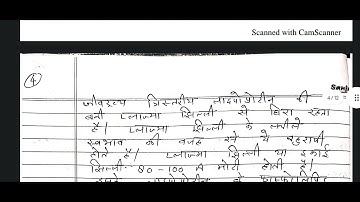 Scanned with CamScanner
4
जीवद्रव्य त्रिस्तरीय लाइपोप्रोटीन की
बनी प्लाज्मा झिल्ली से घिरा रहता
है। प्लाज्मा झिल्ली के लचीले
स्वभाव की वजह से ये
होते है। प्लाज्मा झिल्ली या इकाई
झिल्ली 80-100 A मोटी होती है।